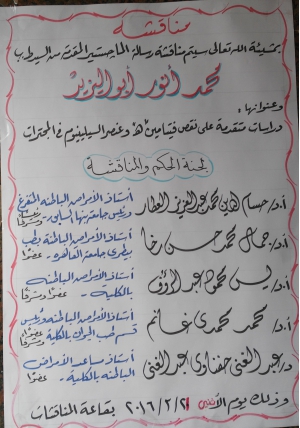 مناقشة
بمشيئة الله تعالى سيتم مناقشة رسالة الماجستير المقدمة من السيد ط.ب
محمد أنور أبو اليزيد
وعنوانها:
دراسات متقدمة على نقص فيتامين هـ وعنصر السيلينيوم في المجترات
لجنة الحكم والمناقشة
أ.د/ حسام الدين محمد عبد العزيز العطار
أستاذ الأمراض الباطنة المتفرغ
ورئيس جامعة بنها السابق - رئيساً ومشرفاً
أ.د/ جمال محمد حسن رخا
أستاذ الأمراض الباطنة بطب
بيطرى جامعة القاهرة - عضواً
أ.د/ يس محمود عبد الرؤف
أستاذ الأمراض الباطنة
بالكلية - عضواً ومشرفاً
أ.د/ محمد حمدى غانم
أستاذ الأمراض الباطنة ورئيس
قسم طب الحيوان بالكلية - عضواً ومشرفاً
د/ عبد الغنى حفناوى عبد الغنى
أستاذ مساعد الأمراض
الباطنة بالكلية - عضواً
وذلك يوم الأثنين ٢٠١٦/٢/٢ بقاعة المناقشات